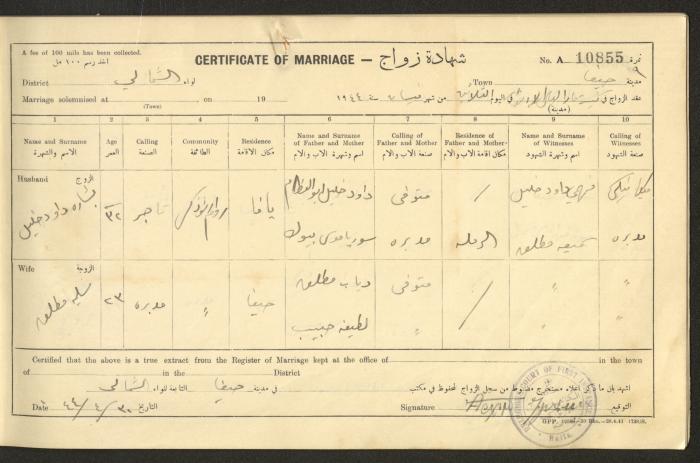 A fee of 100 mils has been collected.
اخذ رسم ١٠٠ مل
CERTIFICATE OF MARRIAGE — شهادة زواج
No. A 10855 نمرة
District لواء الشمالي , Town حيفا مدينة
Marriage solemnised at , on 19
(Town)
١٩٤٤ من شهر نيسان سنة في اليوم الثلاثين عقد الزواج في
(مدينة)
1 2 3 4 5 6 7 8 9 10
Name and Surname
الاسم والشهرة
Age
العمر
Calling
الصنعة
Community
الطائفة
Residence
مكان الاقامة
Name and Surname of Father and Mother
اسم وشهرة الاب والام
Calling of Father and Mother
صنعة الاب والام
Residence of Father and Mother
مكان اقامة الاب والام
Name and Surname of Witnesses
اسم وشهرة الشهود
Calling of Witnesses
صنعة الشهود
Husband الزوج
بشاره داود خليل
٣٢
تاجر
روم ارثوذكس
يافا
داود خليل ابو العظام
متوفي
/
فهمي داود خليل
مديره
الرمله
سميه مطلق
مديره
Wife الزوجة
سليمه مطلق
٢٣
مديره
"
حيفا
دياب مطلق
متوفي
/
"
"
لطيفه حبيب
"
"
"
Certified that the above is a true extract from the Register of Marriage kept at the office of in the town
of in the District
اشهد بان ما ذكر اعلاه مستخرج مضبوط من سجل الزواج المحفوظ في مكتب
في مدينة حيفا التابعة للواء الشمالي
Date ٣٠/٤/٤٤ التاريخ
Signature التوقيع
COURT OF FIRST
Haifa